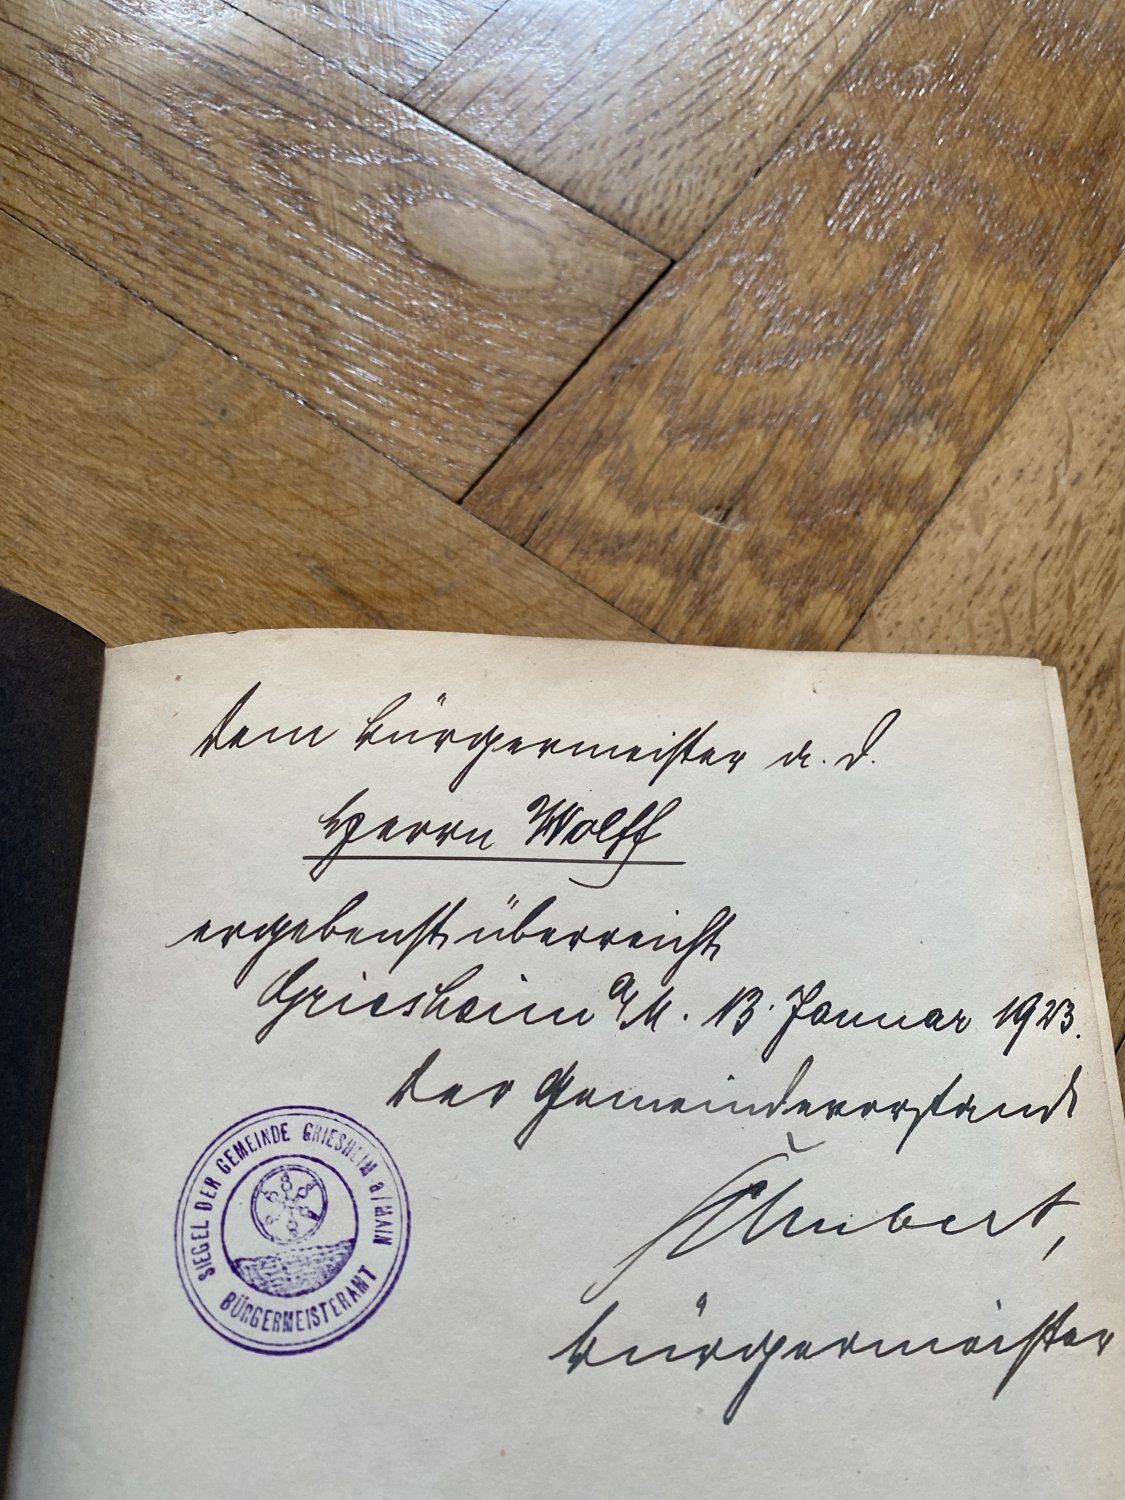 Dem Bürgermeister a. D.
Herrn Wolff
ergebenst überreicht
Griesheim a/M. 13. Januar 1923.
Der Gemeindevorstand
Schubert,
Bürgermeister
SIEGEL DER GEMEINDE GRIESHEIM a/MAIN
BÜRGERMEISTERAMT